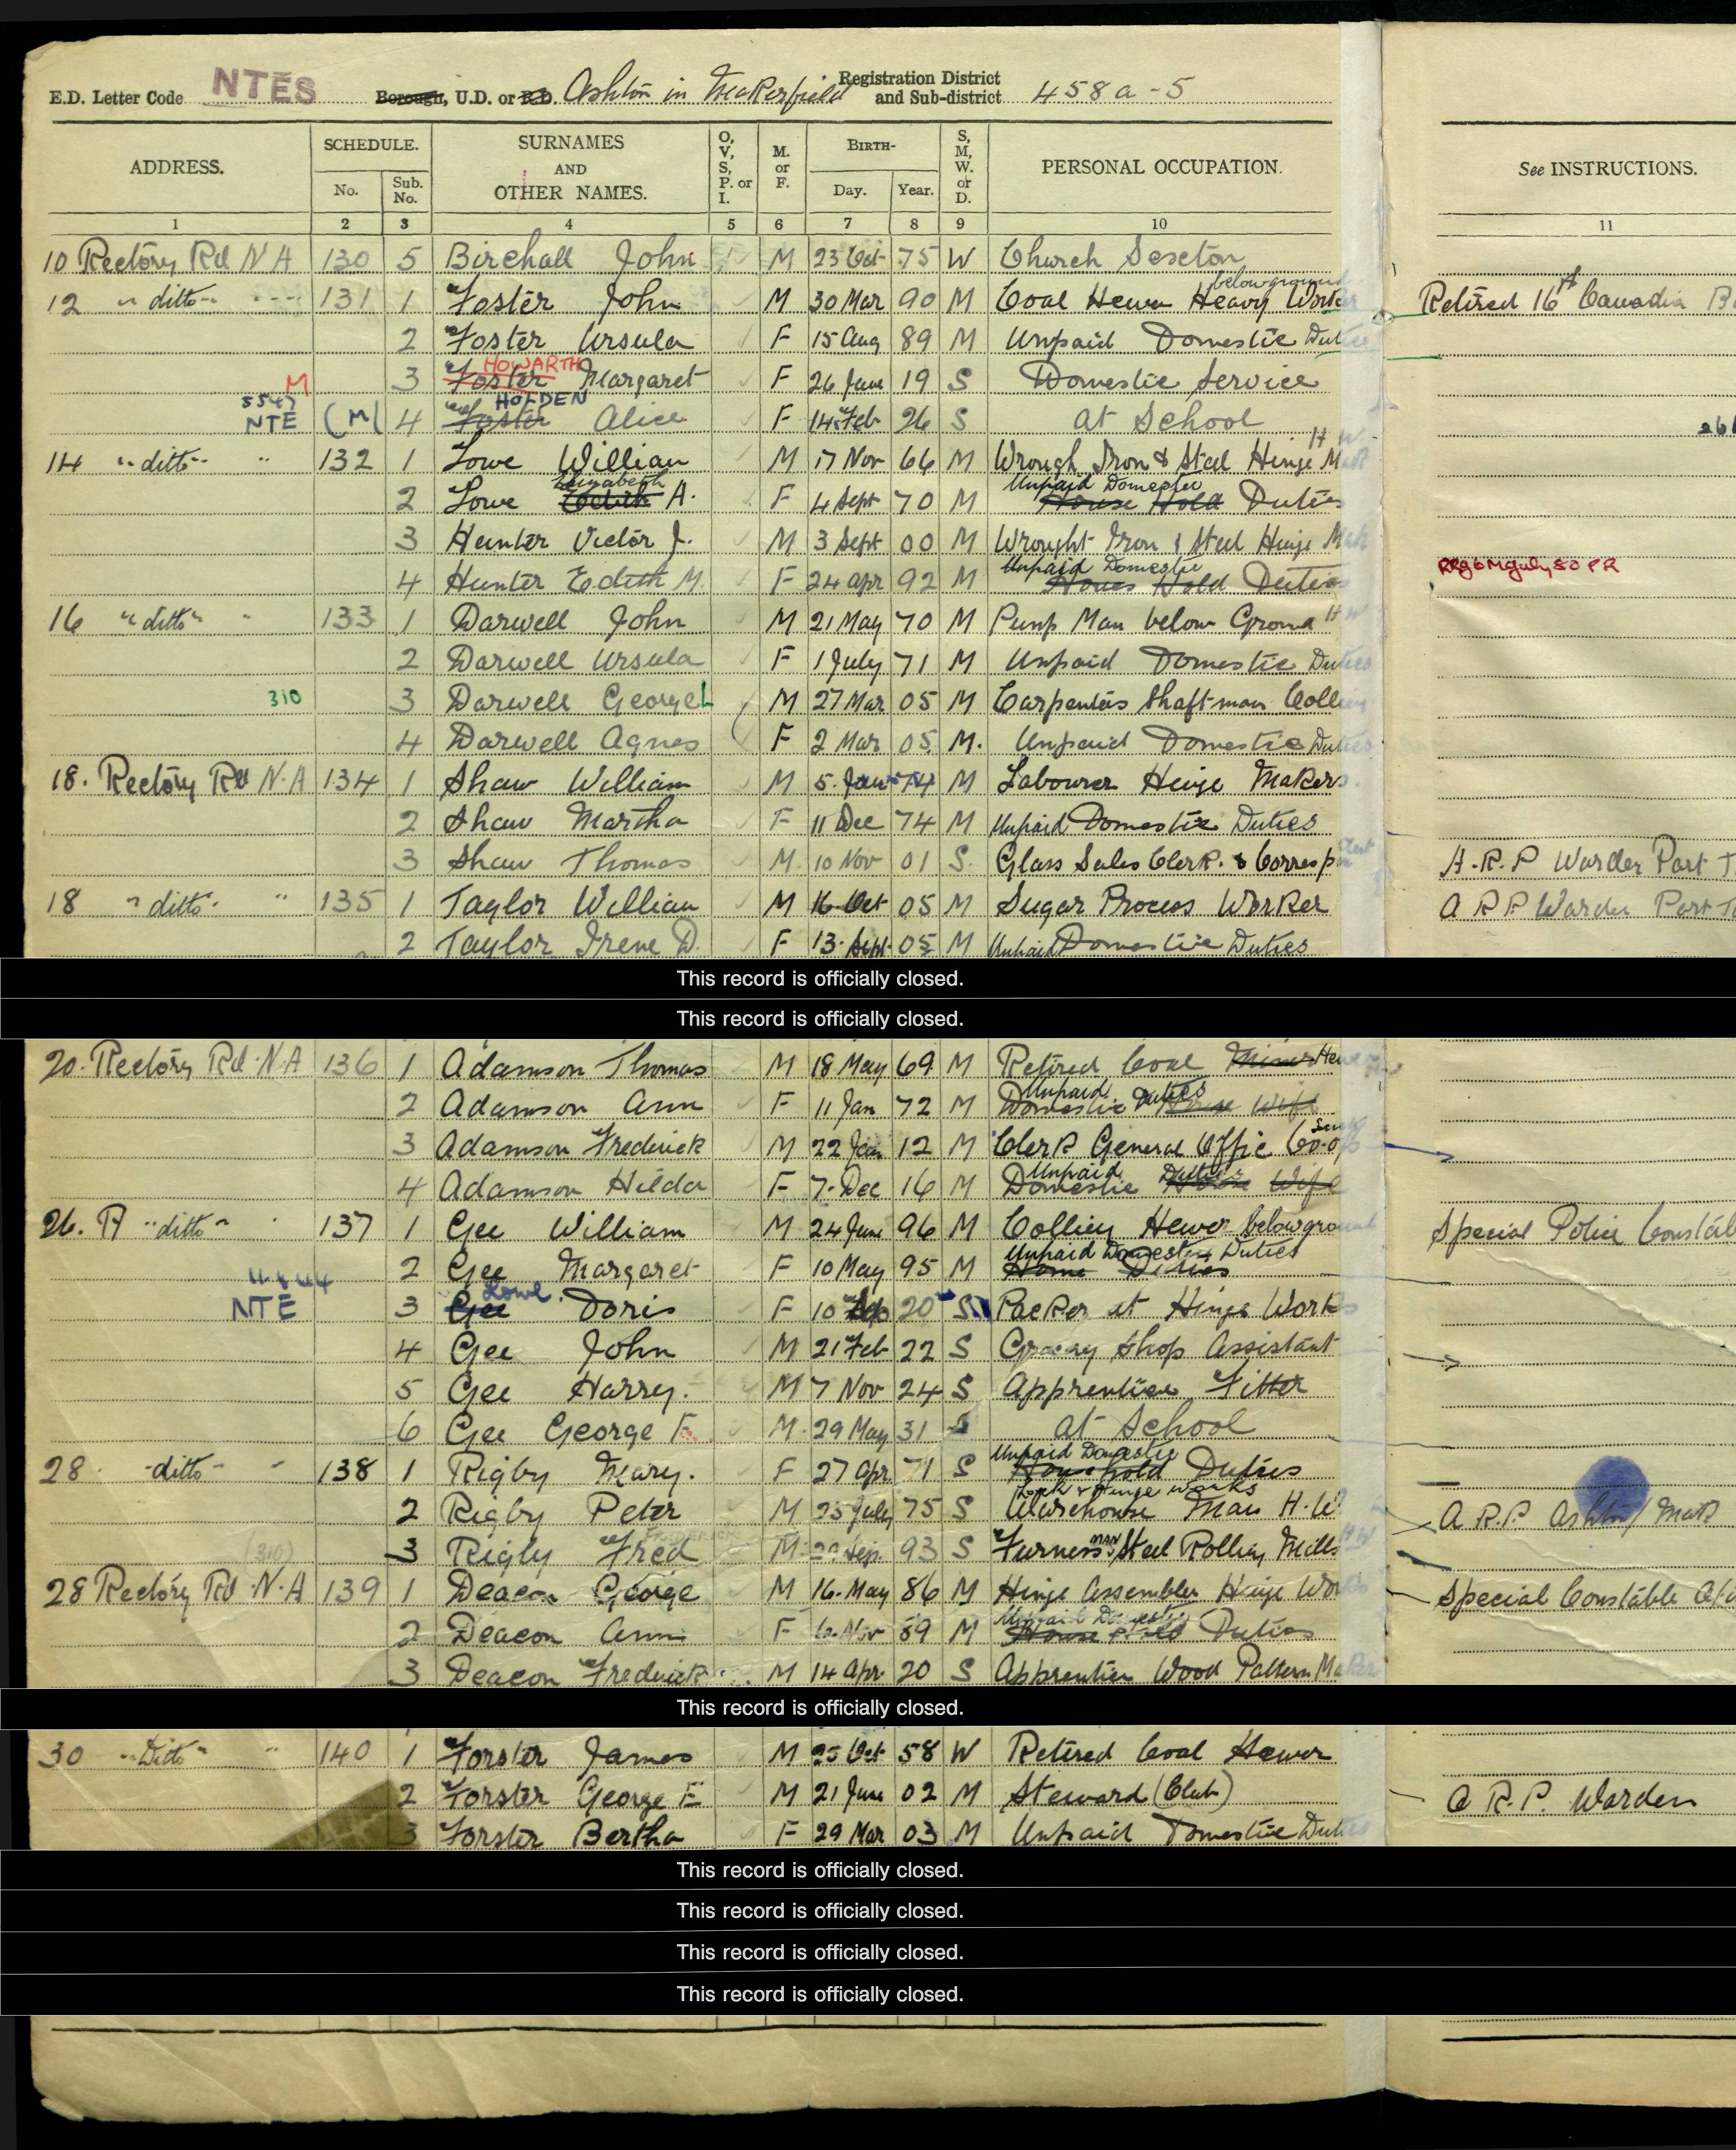 E.D. Letter Code NTES Borough, U.D. or R.D. Ashton in Makerfield Registration District and Sub-district 458a-5
ADDRESS. SCHEDULE. No. Sub. No. SURNAMES AND OTHER NAMES. O, V, S, P. or I. M. or F. BIRTH- Day. Year. S, M, W. or D. PERSONAL OCCUPATION. See INSTRUCTIONS.
1 2 3 4 5 6 7 8 9 10 11
10 Rectory Rd N A 130 5 Birchall John M 23 Oct 75 W Church Sexton
belowground
12 " ditto " 131 1 Foster John M 30 Mar 90 M Coal Hewer Heavy Worker Retired 16th Canadia B
2 Foster Ursula F 15 Aug 89 M Unpaid Domestic Duties
HOWARTH
M 3 Foster Margaret F 26 June 19 S Domestic Service
5547 HOLDEN
NTE (M 4 Foster Alice F 14 Feb 26 S at School 261
14 " ditto " " 132 1 Lowe William M 17 Nov 66 M Wrough Iron & Steel Hinge Mak H W
Elizabeth Unpaid Domestic
2 Lowe Edith A. F 4 Sept 70 M House Hold Duties
3 Hunter Victor J. M 3 Sept 00 M Wrought Iron & Steel Hinge Mak
Unpaid Domestic RRg6MJuly80 PR
4 Hunter Edith M. F 24 Apr 92 M House Hold Duties
16 " ditto " 133 1 Darwell John M 21 May 70 M Pump Man below Ground H W
2 Darwell Ursula F 1 July 71 M Unpaid Domestic Duties
310 3 Darwell George L M 27 Mar 05 M Carpenters Shaftman Colliery
4 Darwell Agnes F 2 Mar 05 M. Unpaid Domestic Duties
18. Rectory Rd N.A 134 1 Shaw William M 5. Jan 74 M Labourer Hinge Makers.
2 Shaw Martha F 11 Dec 74 M Unpaid Domestic Duties
3 Shaw Thomas M. 10 Nov 01 S. Glass Sales Clerk. & Corresp A.R.P Warden Part T
18 " ditto " " 135 1 Taylor William M 16 Oct 05 M Sugar Process Worker A R P Warden Part T
2 Taylor Irene D. F 13. Sept 05 M Unpaid Domestic Duties
This record is officially closed.
This record is officially closed.
20. Rectory Rd. N.A 136 1 Adamson Thomas M 18 May 69 M Retired Coal Miner Hewer
Unpaid Duties
2 Adamson Ann F 11 Jan 72 M Domestic House Wife
3 Adamson Frederick M 22 Jan 12 M Clerk General Offic Co-op
Unpaid Duties
4 Adamson Hilda F 7. Dec 16 M Domestic House Wife
26. A " ditto " 137 1 Gee William M 24 June 96 M Colliery Hewer belowground Special Police Constab
Unpaid Domestic Duties
2 Gee Margaret F 10 May 95 M Home Duties
Lowe
NTE 3 Gee Doris F 10 Sep 20 S Packer at Hinge Works
4 Gee John M 21 Feb 22 S Grocery Shop Assistant
5 Gee Harry. M 7 Nov 24 S Apprentice Fitter
6 Gee George F. M. 29 May 31 S at School
Unpaid Domestic
28. - ditto - 138 1 Rigby Mary. F 27 Apr. 71 S Household Duties
Lock & Hinge Works
2 Rigby Peter M 25 July 75 S Warehouse Man H.W A.R.P. Ashton / Mak
FREDERICK MAN
(310) 3 Rigby Fred M 29 Sep. 93 S Furness Steel Rolling Mills H W
28 Rectory Rd. N.A 139 1 Deacon George M 16. May 86 M Hinge Assembler Hinge Works Special Constable
Unpaid Domestic
2 Deacon Ann F 6. Nov 89 M House Hold Duties
3 Deacon Frederick M 14 Apr. 20 S Apprentice Wood Pattern Maker
This record is officially closed.
30 " Ditto " " 140 1 Forster James M 25 Oct 58 W Retired Coal Hewer
2 Forster George E M 21 June 02 M Steward (Club) A R.P. Warden
3 Forster Bertha F 29 Mar 03 M Unpaid Domestic Duties
This record is officially closed.
This record is officially closed.
This record is officially closed.
This record is officially closed.